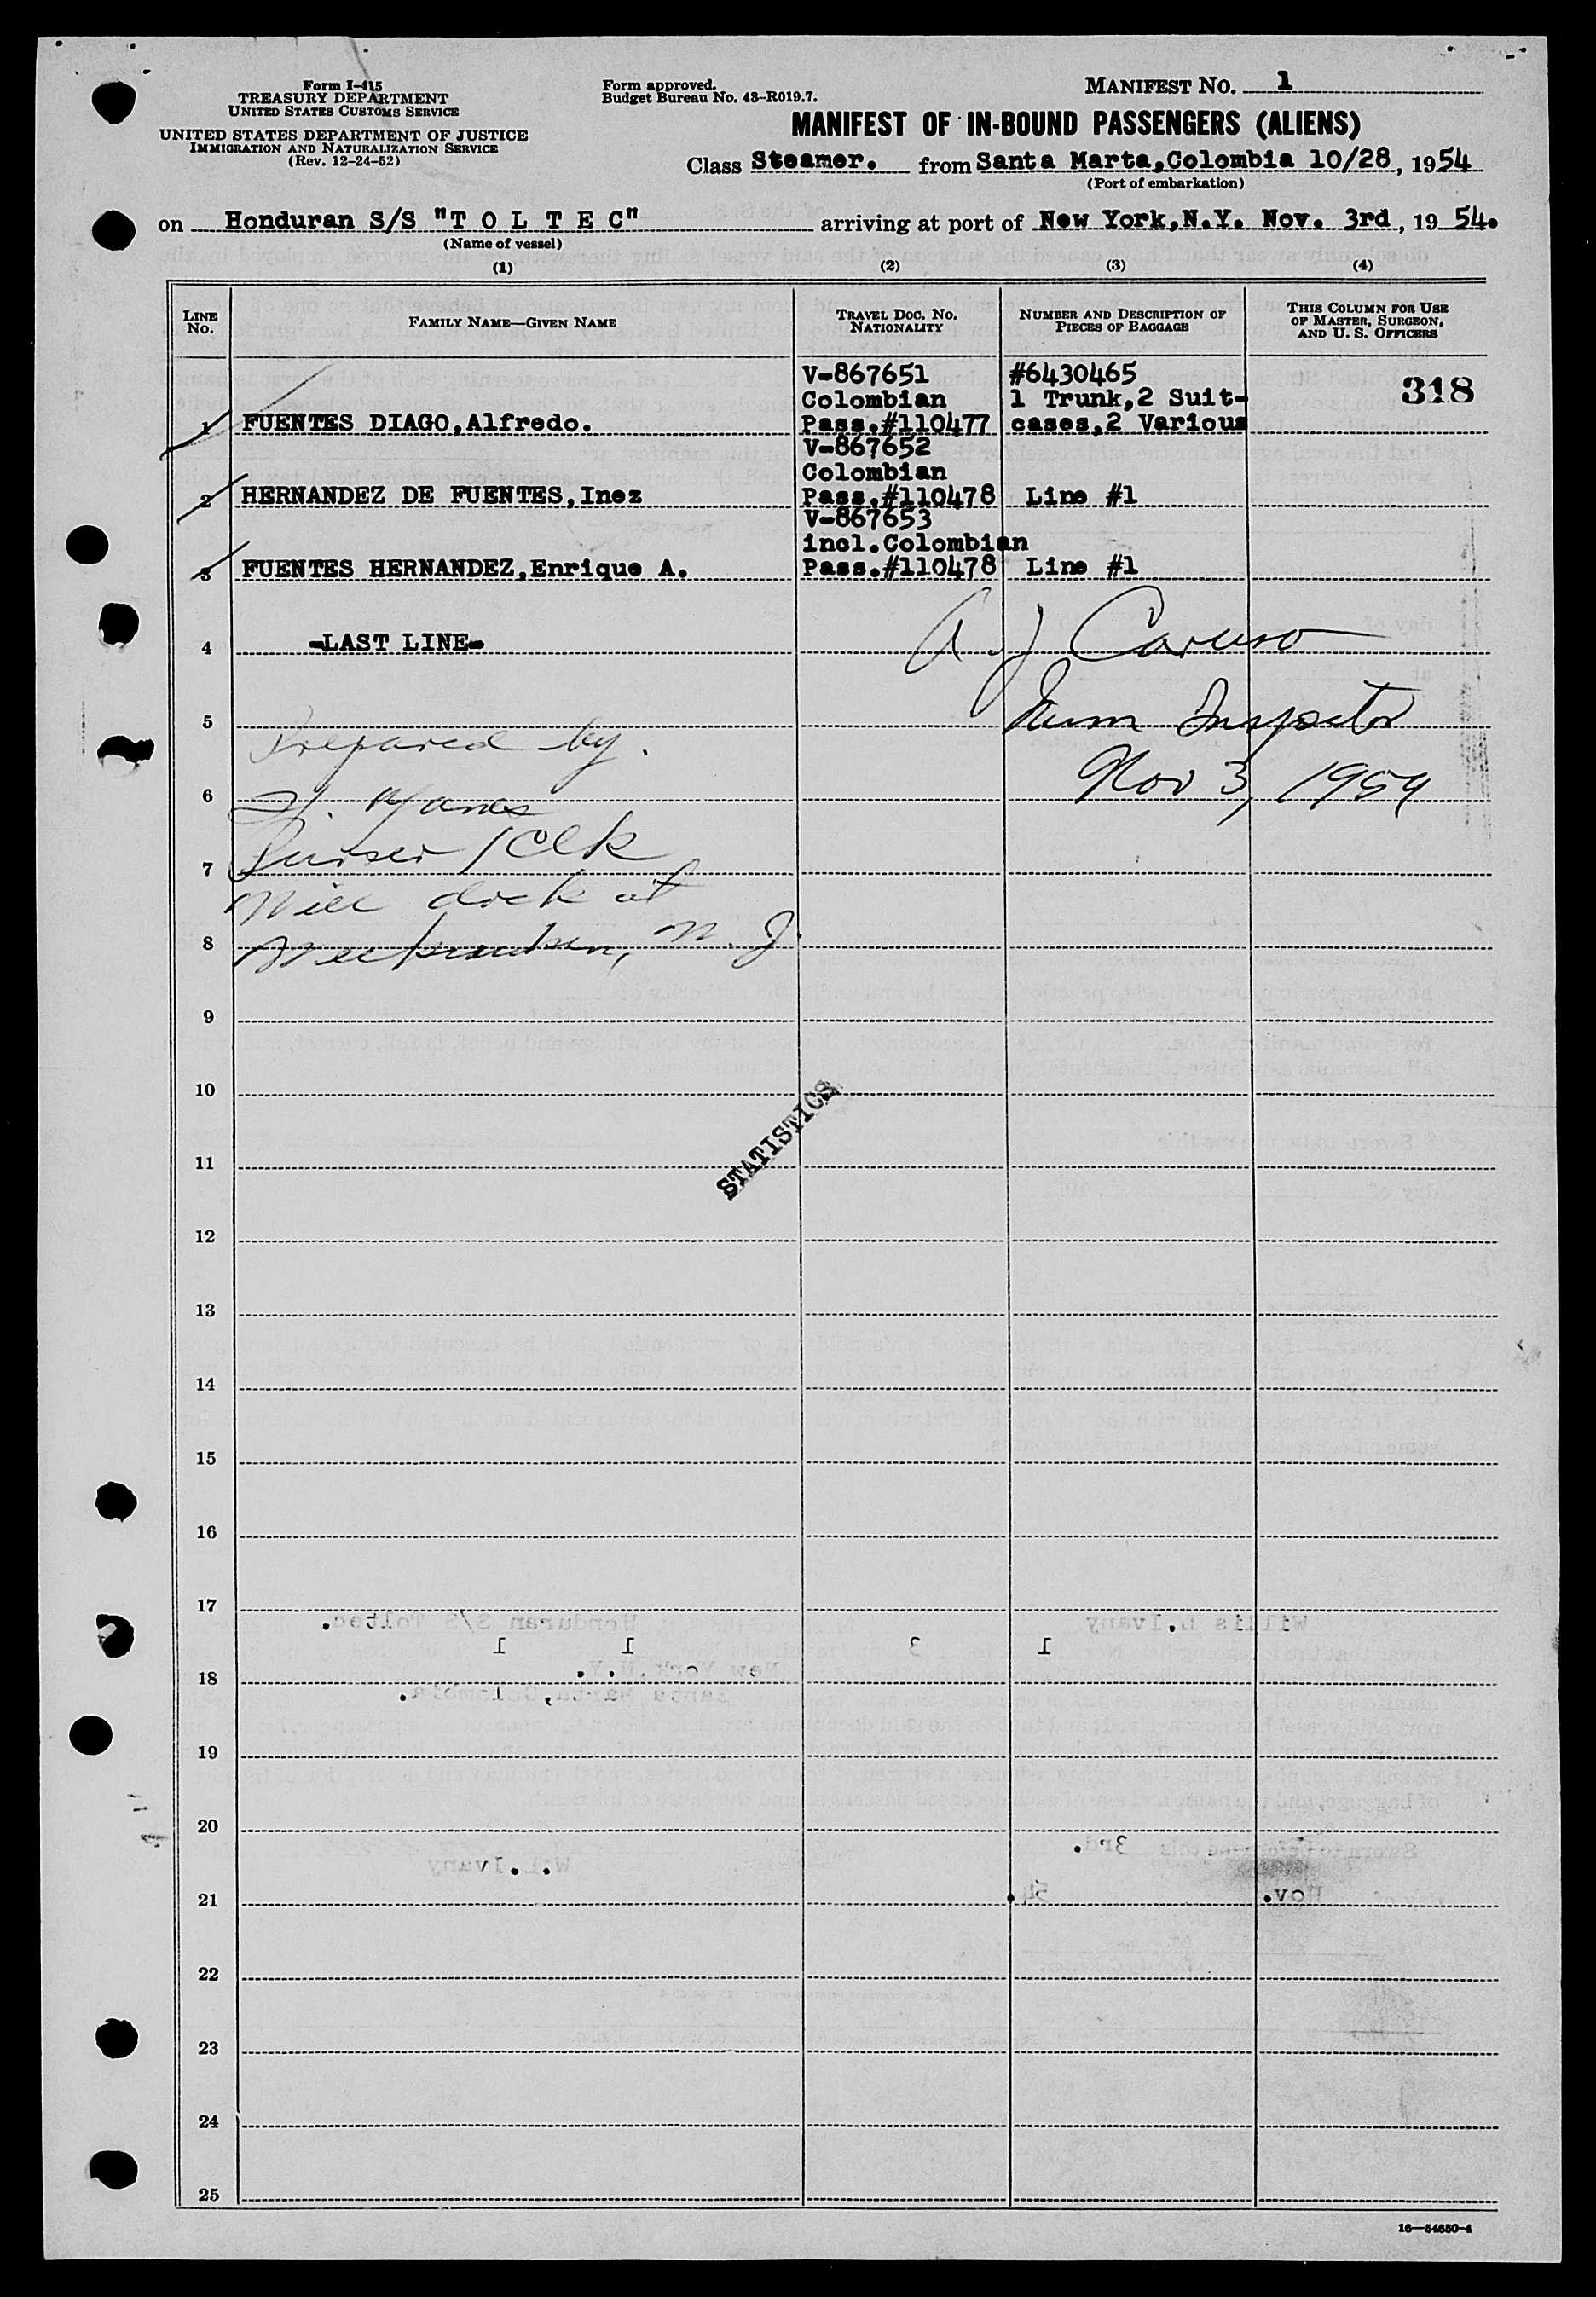 Form I-415
TREASURY DEPARTMENT
UNITED STATES CUSTOMS SERVICE
UNITED STATES DEPARTMENT OF JUSTICE
IMMIGRATION AND NATURALIZATION SERVICE
(Rev. 12-24-52)
Form approved.
Budget Bureau No. 43-R019.7.
MANIFEST NO. 1
MANIFEST OF IN-BOUND PASSENGERS (ALIENS)
Class Steamer. from Santa Marta,Colombia 10/28, 1954
(Port of embarkation)
on Honduran S/S "T O L T E C" arriving at port of New York,N.Y. Nov. 3rd, 19 54.
(Name of vessel)
(1) (2) (3) (4)
LINE NO. FAMILY NAME—GIVEN NAME TRAVEL DOC. NO. NATIONALITY NUMBER AND DESCRIPTION OF PIECES OF BAGGAGE THIS COLUMN FOR USE OF MASTER, SURGEON, AND U. S. OFFICERS
V-867651 #6430465 318
Colombian 1 Trunk,2 Suit-
1 FUENTES DIAGO,Alfredo. Pass.#110477 cases,2 Various
V-867652
Colombian
2 HERNANDEZ DE FUENTES,Inez Pass.#110478 Line #1
V-867653
incl.Colombian
3 FUENTES HERNANDEZ,Enrique A. Pass.#110478 Line #1
4 -LAST LINE- A. J Caruso
5 Imm Inspector
Prepared by.
6 Nov 3, 1954
Purser/Clk
7
Will dock at
8 Weehawken, N. J.
9
10
STATISTICS
11
12
13
14
15
16
17
Willis L.Ivany Honduran S/S Toltec.
1 3 1 1
18 New York,N.Y.
Santa Marta,Colombia.
19
20
3rd.
W.L.Ivany
21 Nov. 54
22
23
24
25
16—54650-4